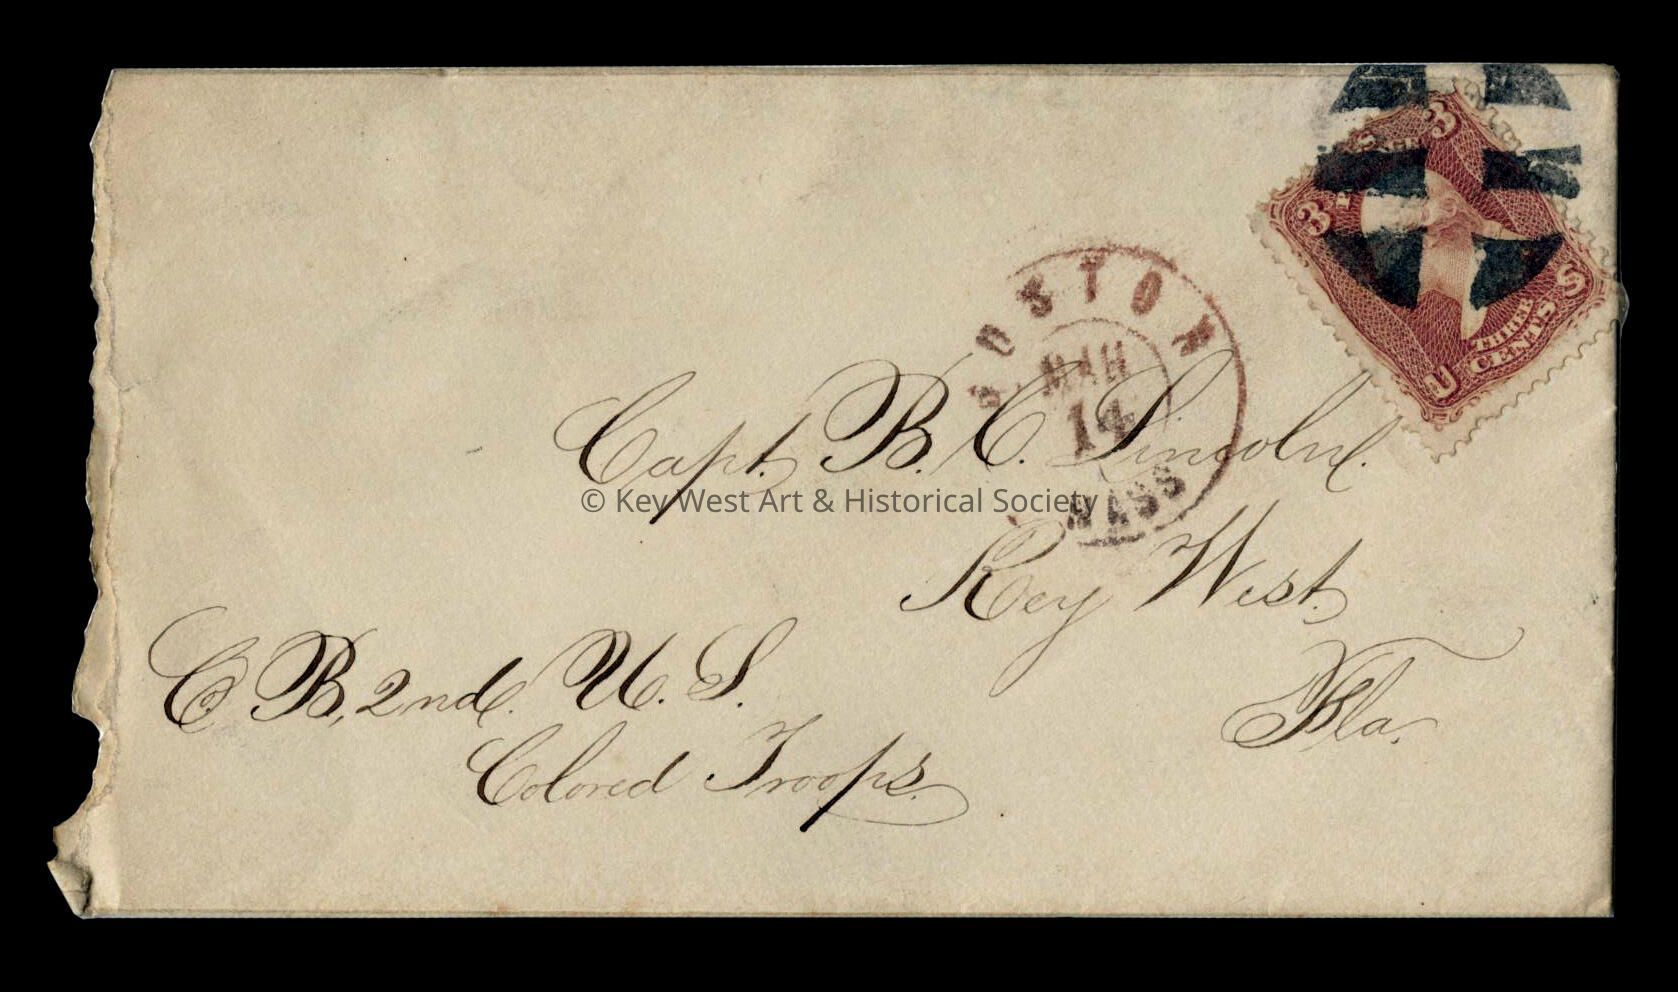 3 3
U S
THREE
CENTS
BOSTON
MAR
14
MASS
Capt. B. C. Lincoln.
© Key West Art & Historical Society
Key West
Fla.
Co B, 2nd. U. S.
Colored Troops.